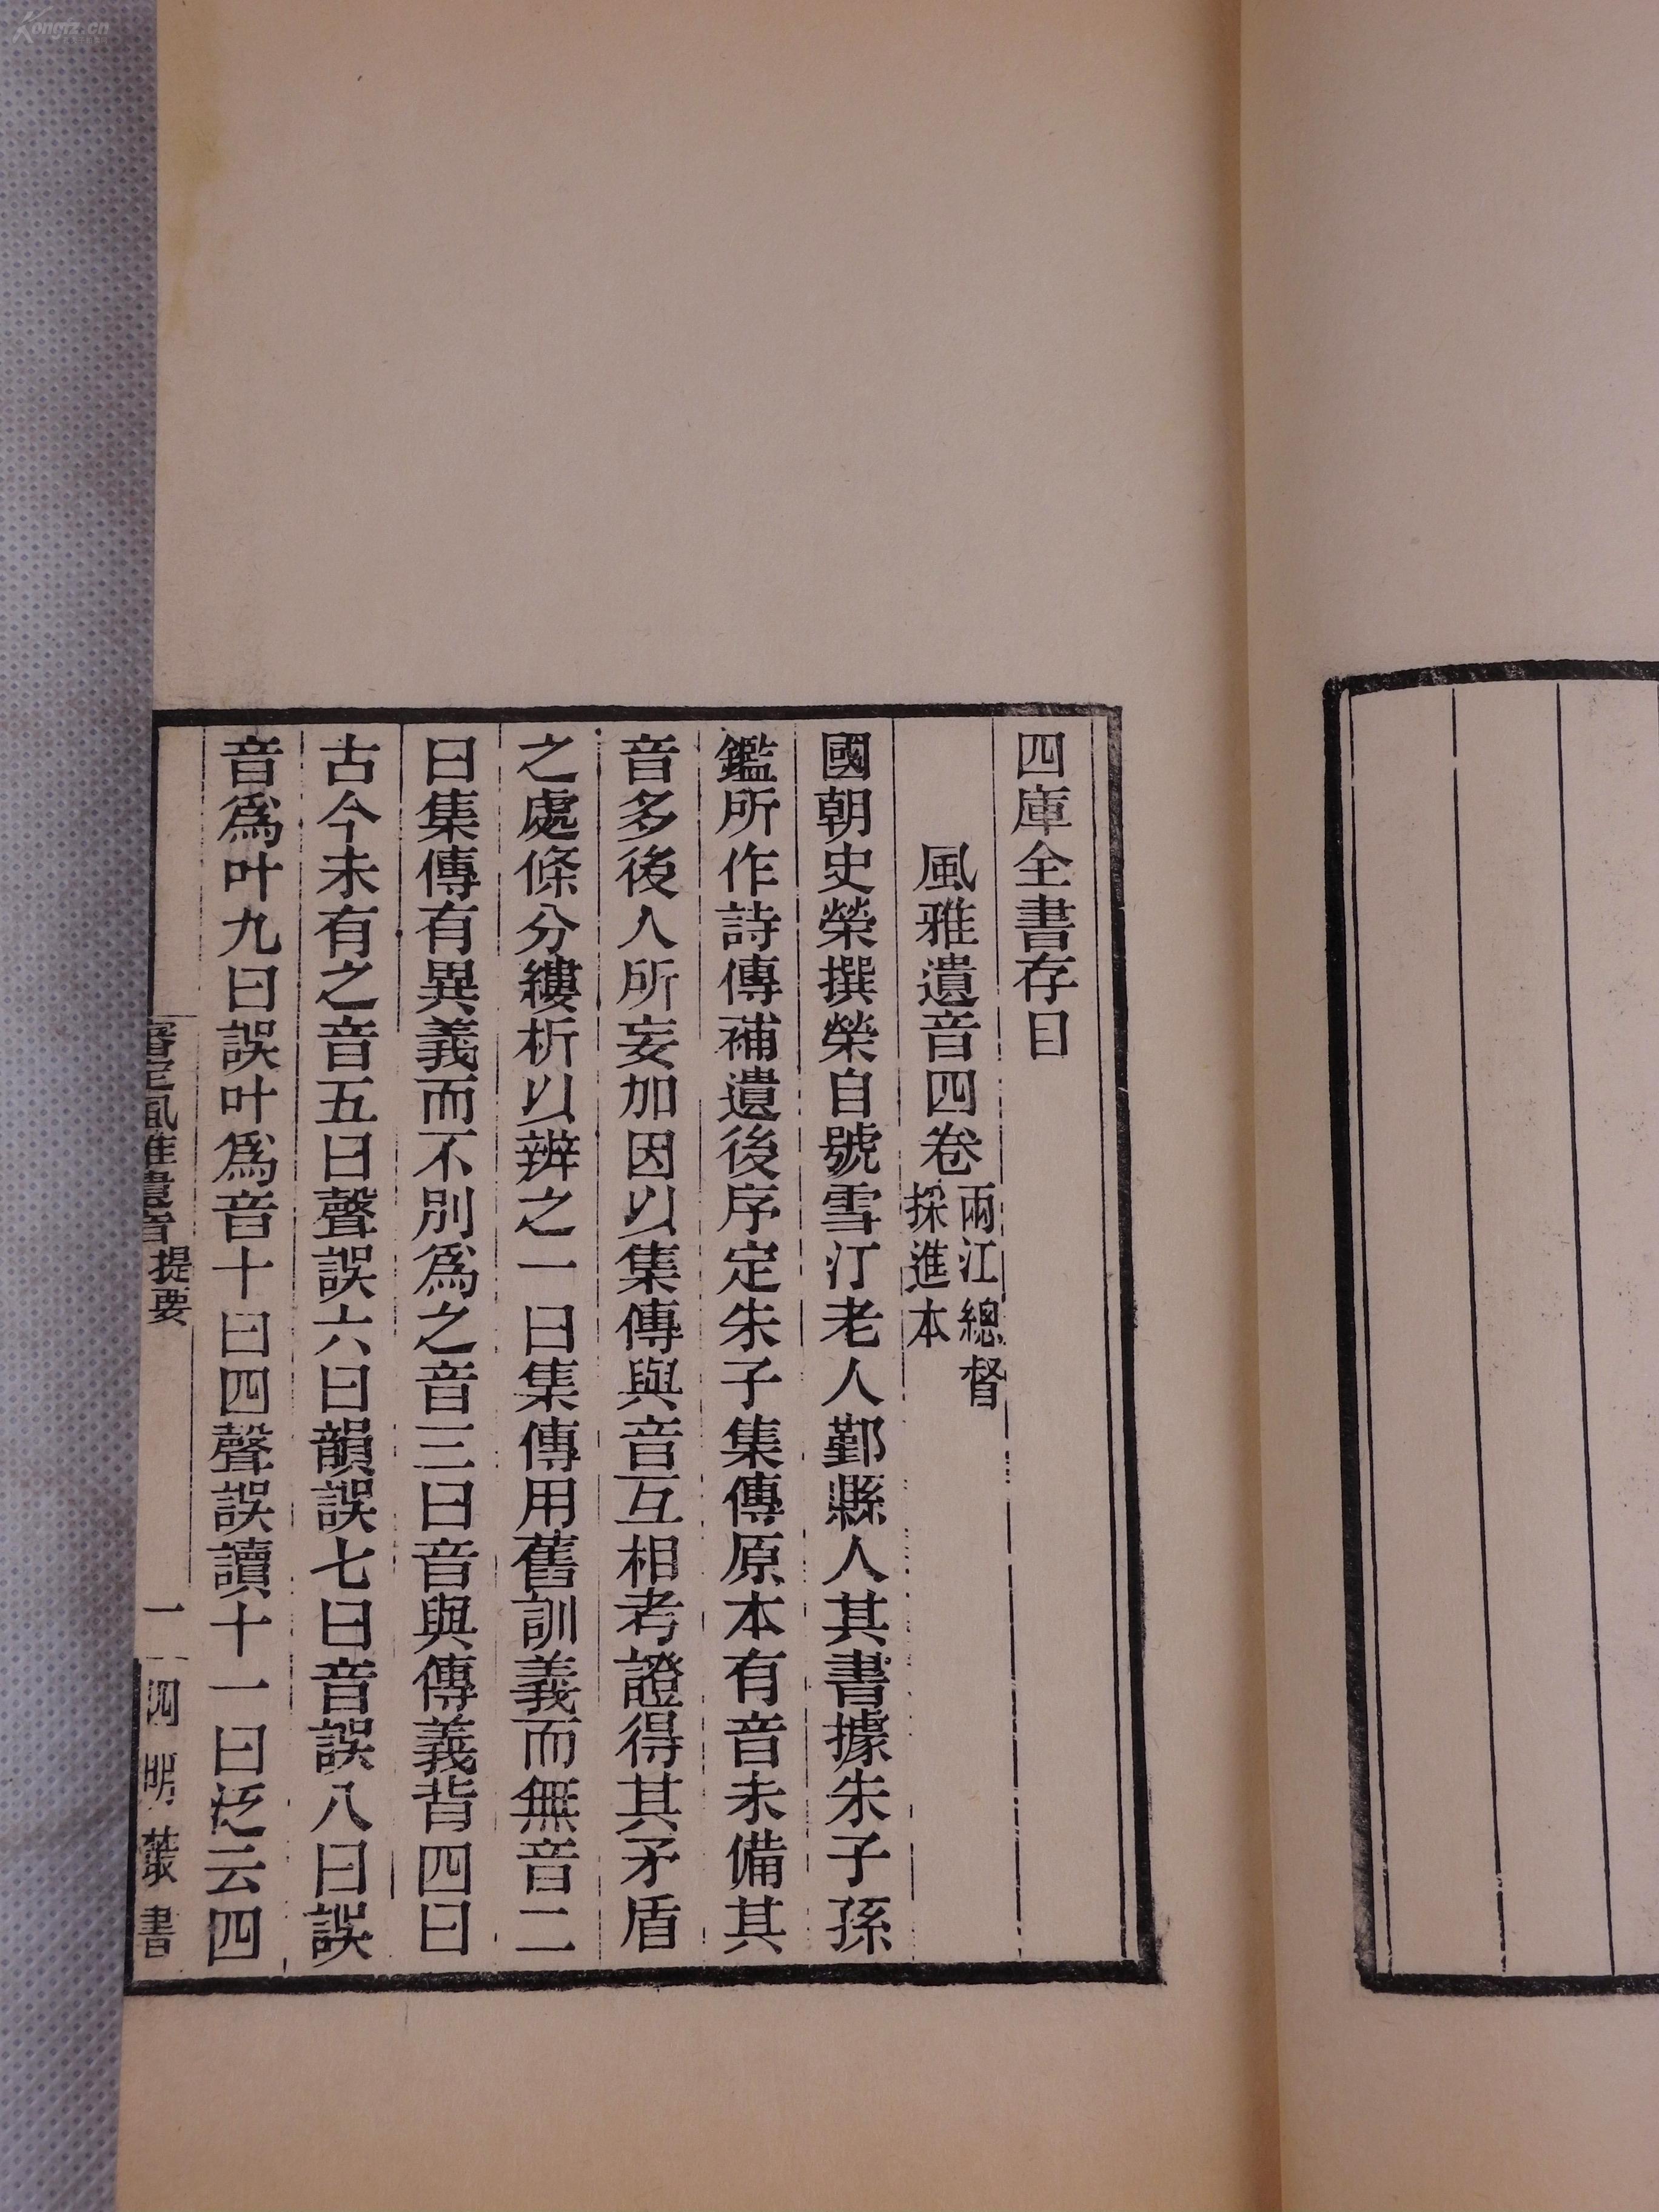 四庫全書存目
風雅遺音四卷兩江總督採進本
國朝史榮撰榮自號雪汀老人鄞縣人其書據朱子孫
鑑所作詩傳補遺後序定朱子集傳原本有音未備其
音多後人所妄加因以集傳與音互相考證得其矛盾
之處條分縷析以辨之一曰集傳用舊訓義而無音二
曰集傳有異義而不別爲之音三曰音與傳義背四曰
古今未有之音五曰聲誤六曰韻誤七曰音誤八曰誤
音爲叶九曰誤叶爲音十曰四聲誤讀十一曰泛云四
審定風雅遺音提要
一
四明叢書
Kongfz.cn